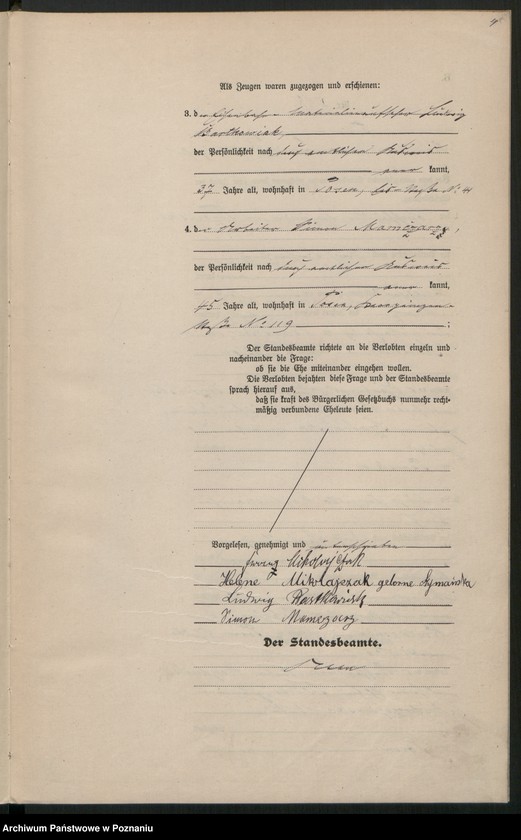 Als Zeugen waren zugezogen und erschienen:
3. der Eisenbahn- Materialienaufseher Ludwig
Bartkowiak,
der Persönlichkeit nach durch amtlichen Ausweis
aner kannt,
37 Jahre alt, wohnhaft in Posen, straße No 44
4. der Arbeiter Simon
der Persönlichkeit nach durch amtlichen Ausweis
aner kannt,
45 Jahre alt, wohnhaft in Posen,
straße No 119 ;
Der Standesbeamte richtete an die Verlobten einzeln und
nacheinander die Frage:
ob sie die Ehe miteinander eingehen wollen.
Die Verlobten bejahten diese Frage und der Standesbeamte
sprach hierauf aus,
daß sie kraft des Bürgerlichen Gesetzbuchs nunmehr recht-
mäßig verbundene Eheleute seien.
Vorgelesen, genehmigt und unterschrieben
Franz Mikołajczak
Helene Mikołajczak geborne
Ludwig
Simon
Der Standesbeamte.
Archiwum Państwowe w Poznaniu